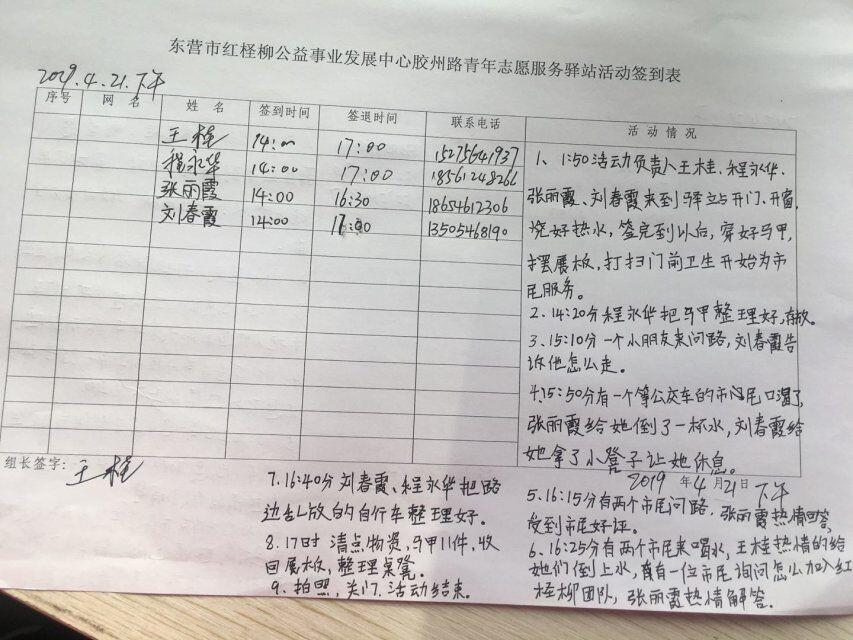 东营市红柽柳公益事业发展中心胶州路青年志愿服务驿站活动签到表
2019.4.21.下午
序号 网名 姓名 签到时间 签退时间 联系电话 活动情况
王桂 14:00 17:00 15275641937
程永华 14:00 17:00 18561248266
张丽霞 14:00 16:30 18654612306
刘春霞 14:00 17:00 13505468190
1、1:50活动负责人王桂、程永华、
张丽霞、刘春霞来到驿站开门、开窗,
烧好热水,签完到以后,穿好马甲,
摆展板,打扫门前卫生开始为市
民服务。
2、14:20分程永华把马甲整理好,存放。
3、15:10分一个小朋友来问路,刘春霞告
诉他怎么走。
4、15:50分有一个等公交车的市民口渴了,
张丽霞给她倒了一杯水,刘春霞给
她拿了小凳子让她休息。
组长签字:王桂
2019年4月21日下午
5、16:15分有两个市民问路,张丽霞热情回答,
受到市民好评。
6、16:25分有两个市民来喝水,王桂热情的给
她们倒上水,有一位市民询问怎么加入红
柽柳团队,张丽霞热情解答。
7、16:40分刘春霞、程永华把路
边乱放的自行车整理好。
8、17时清点物资,马甲11件,收
回展板,整理桌凳。
9、拍照,关门,活动结束。